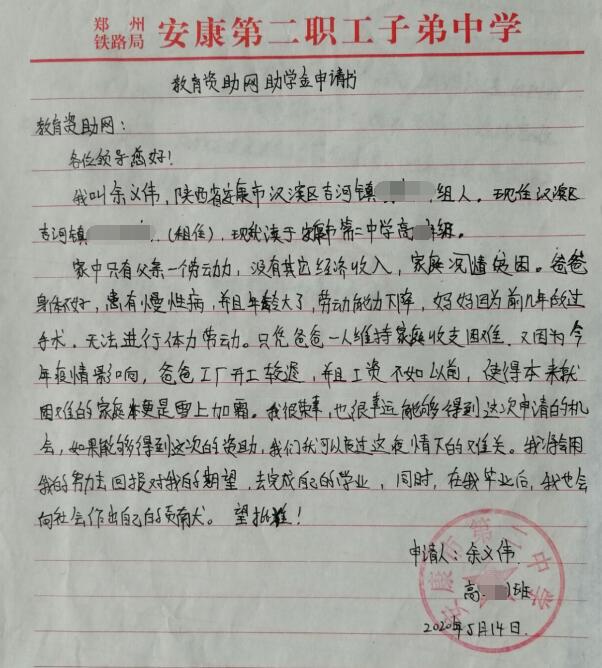 郑州铁路局 安康第二职工子弟中学
教育资助网助学金申请书
教育资助网：
各位领导您好！
我叫余义伟，陕西省安康市汉滨区吉河镇 组人。现住汉滨区
吉河镇 （租住），现就读于安康市第二中学高 班。
家中只有父亲一个劳动力，没有其它经济收入，家庭况情贫困。爸爸
身体不好，患有慢性病，并且年龄大了，劳动能力下降，妈妈因为前几年做过
手术，无法进行体力劳动。只凭爸爸一人维持家庭收支困难，又因为今
年疫情影响，爸爸工厂开工较迟，并且工资不如以前，使得本来就
困难的家庭本更是雪上加霜。我很荣幸，也很幸运能够得到这次申请的机
会，如果能够得到这次的资助，我们我可以度过这疫情下的难关。我将会用
我的努力去回报对我的期望，去完成自己的学业，同时，在我毕业后，我也会
向社会作出自己的贡献。望批准！
申请人：余义伟
高 班
2020年5月14日
安康市第二中学